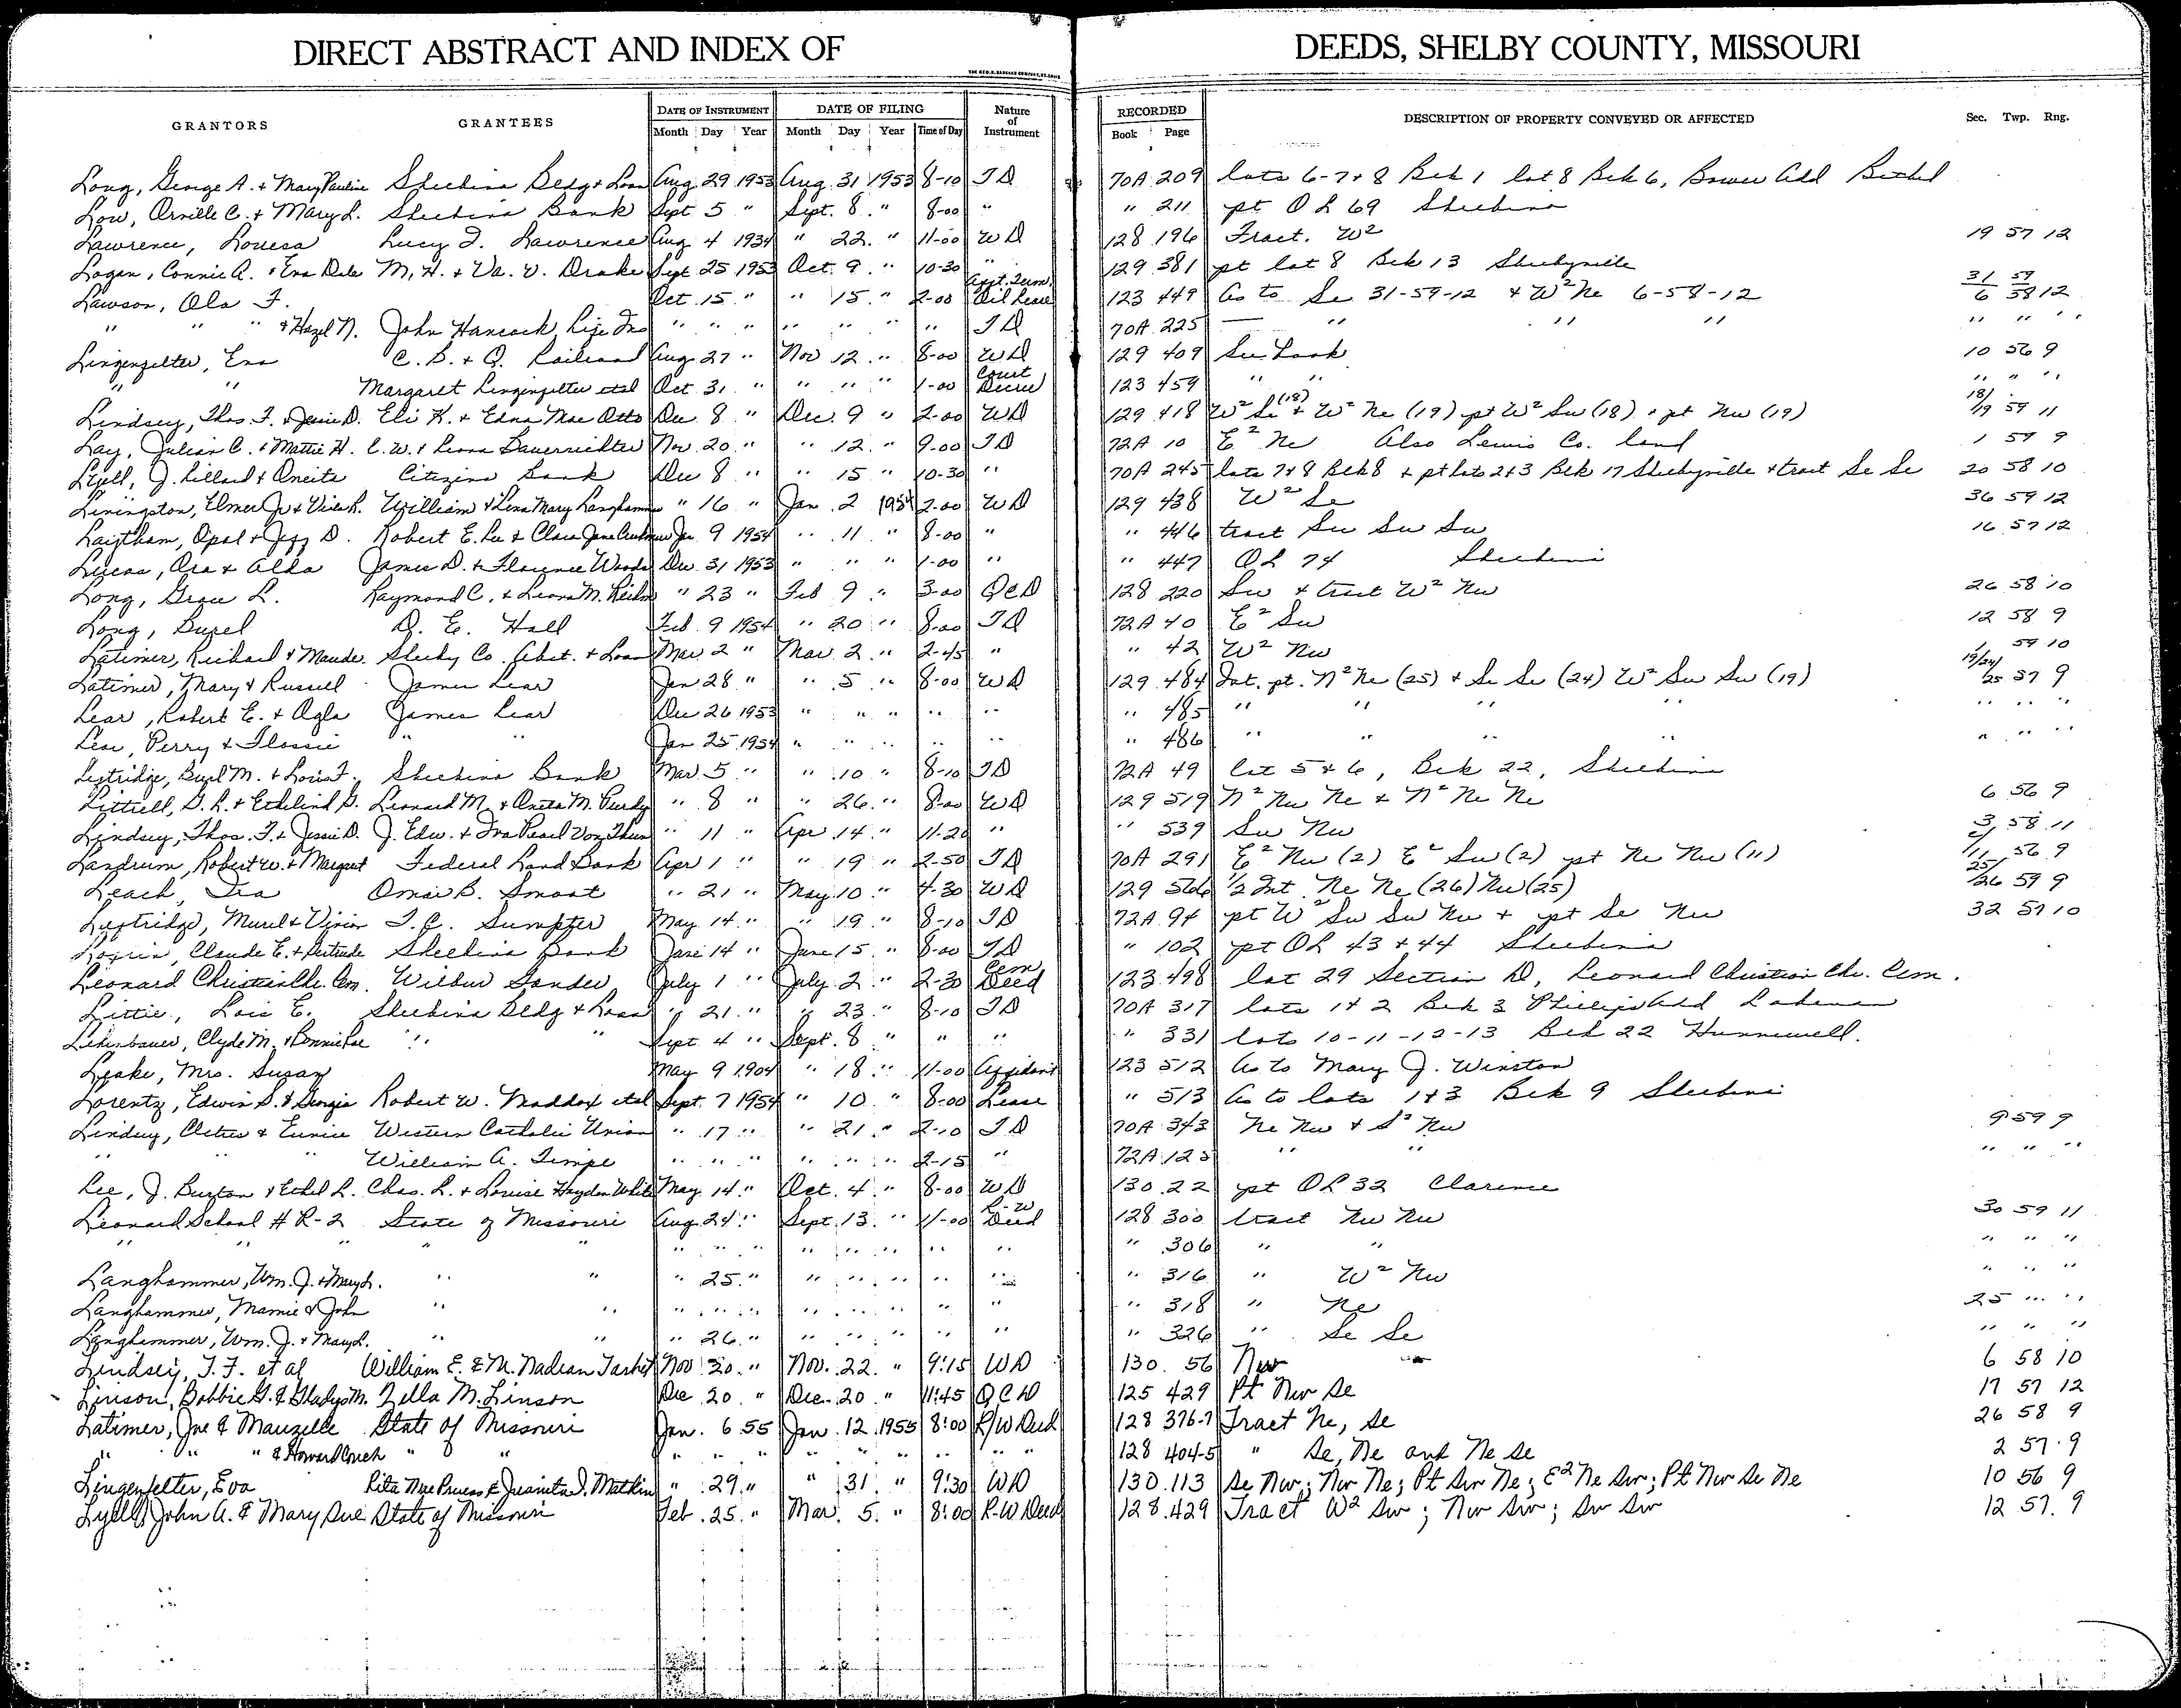 DIRECT ABSTRACT AND INDEX OF DEEDS, SHELBY COUNTY, MISSOURI
GRANTORS GRANTEES DATE OF INSTRUMENT DATE OF FILING Nature of Instrument RECORDED DESCRIPTION OF PROPERTY CONVEYED OR AFFECTED Sec. Twp. Rng.
Month Day Year Month Day Year Time of Day Book Page
Long, George A. & Mary Pauline Shelbina Bldg & Loan Aug 29 1953 Aug 31 1953 8-10 T D 70A 209 lots 6-7 & 8 Blk 1 lot 8 Blk 6, Bower Add Bethel
Low, Orville C. & Mary L. Shelbina Bank Sept 5 " Sept. 8 " 8-00 " " 211 pt O L 69 Shelbina
Lawrence, Louesa Lucy J. Lawrence Aug 4 1934 " 22 " 11-00 W D 128 196 Fract. W2 19 57 12
Logan, Connie A. & Eva Dale M. H. & Va. V. Drake Sept 25 1953 Oct. 9 " 10-30 " 129 381 pt lot 8 Blk 13 Shelbyville
Lawson, Ola F. Oct. 15 " " 15 " 2-00 Oil Lease 123 449 As to Se 31-59-12 & W2 Ne 6-58-12 31/6 59/58 12
" " " & Hazel N. John Hancock Life Ins " " " " " " " T D 70A 225 " " " " " "
Lingenfelter, Eva C. B. & Q. Railroad Aug. 27 " Nov 12 " 8-00 W D 129 409 See Book 10 56 9
" " Margaret Lingenfelter etal Oct 31 " " " " 1-00 Court Decree 123 459 " " " " "
Lindsey, Thos. F. & Jessie D. Eli K. & Edna Mae Otto Dec 8 " Dec. 9 " 2-00 W D 129 418 W2 Se (18) & W2 Ne (19) pt W2 Sw (18) & pt Nw (19) 18/19 59 11
Lay, Julian C. & Mattie H. C. W. & Leona Dauerrichter Nov 20 " " 12 " 9-00 T D 72A 10 E2 Ne Also Lewis Co. land 1 59 9
Lyell, J. Lillard & Oneita Citizens Bank Dec 8 " " 15 " 10-30 " 70A 245 lots 7 & 8 Blk 8 & pt lots 2 & 3 Blk 17 Shelbyville & tract Se Se 20 58 10
Livingston, Elmer Jr & William & Lena Mary Langhammer " 16 " Jan. 2 1954 2-00 W D 129 438 W2 Se 36 59 12
Opal & D. Robert E. Lee & Clara Jane Jan 9 1954 " 11 " 8-00 " " 446 tract Sw Sw Sw 16 57 12
Lucas, Ora & Alda James D. & Florence Woods Dec. 31 1953 " " " 1-00 " " 447 O L 74 Shelbina
Long, Grace L. Raymond C. & Leona M. " 23 " Feb 9 " 3-00 Q C D 128 220 Sw & tract W2 Nw 26 58 10
Long, Burel D. E. Hall Feb. 9 1954 " 20 " 8-00 T D 72A 40 E2 Sw 12 58 9
Latimer, Richard & Maude Shelby Co. Abst. & Loan Mar 2 " Mar 2 " 2-45 " " 42 W2 Nw 1 59 10
Latimer, Mary & Russell James Lear Jan 28 " " 5 " 8-00 W D 129 484 Int. pt. N2 Ne (25) & Se Se (24) W2 Sw Sw (19) 19/24/25 57 9
Lear, Robert E. & Agla James Lear Dec 26 1953 " " " " " " 485 " " " " " " "
Lear, Perry & Flossie " " Jan 25 1954 " " " " " " 486 " " " " " " "
Burl M. & Lois F. Shelbina Bank Mar. 5 " " 10 " 8-10 T D 72A 49 lot 5 & 6, Blk 22, Shelbina
Littrell, G. L. & Ethelind G. Leonard M. & Anita M. Purdy " 8 " " 26 " 8-00 W D 129 519 N2 Nw Ne & N2 Ne Ne 6 56 9
Lindsey, Thos. F. & Jessie D. J. Edw. & Iva Pearl Von Thun " 11 " Apr 14 " 11-20 " " 539 Sw Nw 3 58 11
Landrum, Robert W. & Margaret Federal Land Bank Apr 1 " " 19 " 2-50 T D 70A 291 E2 Nw (2) E2 Sw (2) pt Ne Nw (11) 2/11 56 9
Leach, Ira Omar B. Smoot " 21 " May 10 " 4-30 W D 129 566 1/2 Int. Ne Ne (26) Nw (25) 25/26 59 9
Murel & Vivian T. C. Sumpter May 14 " " 19 " 8-10 T D 72A 94 pt W2 Sw Sw Nw & pt Se Nw 32 57 10
Claude E. & Gertrude Shelbina Bank June 14 " June 15 " 8-00 T D " 102 pt O L 43 & 44 Shelbina
Leonard Christian Ch. Cem. Wilbur Sander July 1 " July 2 " 2-30 Cem Deed 123 498 lot 29 Section D, Leonard Christian Ch. Cem.
Littie, Lois E. Shelbina Bldg & Loan " 21 " " 23 " 8-10 T D 70A 317 lots 1 & 2 Blk 3 Phillips Add Lakenan
Clyde M. & Bonnie Rae " " Sept 4 " Sept. 8 " " " " 331 lots 10-11-12-13 Blk 22 Hunnewell.
Leake, Mrs. Susan May 9 1904 " 18 " 11-00 Affidavit 123 512 As to Mary J. Winston
Lorentz, Edwin S. & Georgia Robert W. Maddox etal Sept. 7 1954 " 10 " 8-00 Lease " 513 As to lots 1 & 3 Blk 9 Shelbina
Lindsey, Cletus & Eunice Western Catholic Union " 17 " " 21 " 2-10 T D 70A 343 Ne Nw & S2 Nw 9 59 9
" " " William A. Timpe " " " " " " 2-15 " 72A 125 " " " " "
Lee, J. Burton & Ethel L. Chas. L. & Louise Hayden White May 14 " Oct. 4 " 8-00 W D 130 22 pt O L 32 Clarence
Leonard School # R-2 State of Missouri Aug. 24 " Sept. 13 " 11-00 R-W Deed 128 300 tract Nw Nw 30 59 11
" " " " " " " " " " " " " 306 " " " " "
Langhammer, Wm. J. & Mary L. " " " 25 " " " " " " " 316 " W2 Nw " " "
Langhammer, Mamie & John " " " " " " " " " " " 318 " Ne 25 " "
Langhammer, Wm. J. & Mary L. " " " 26 " " " " " " " 326 " Se Se " " "
Lindsey, T. F. et al William E. & M. Nadean Tarbet Nov 20 " Nov. 22 " 9:15 WD 130 56 Nw 6 58 10
Linson, Bobbie G. & Gladys M. Zella M. Linson Dec 20 " Dec. 20 " 11:45 Q C D 125 429 Pt Nw Se 17 57 12
Latimer, Joe & Mauzelle State of Missouri Jan. 6 55 Jan. 12 1955 8:00 R/W Deed 128 376-7 Tract Ne, Se 26 58 9
" " " & Howard Couch " " " " " " " " " " " 128 404-5 " Se, Ne and Ne Se 2 57 9
Lingenfelter, Eva Rita Mae & Juanita J. Mathis " 29 " " 31 " 9:30 WD 130 113 Se Nw; Nw Ne; Pt Sw Ne; E2 Ne Sw; Pt Nw Se Ne 10 56 9
Lyell, John A. & Mary Sue State of Missouri Feb. 25 " Mar. 5 " 8:00 R-W Deed 128 429 Tract W2 Sw; Nw Sw; Sw Sw 12 57 9